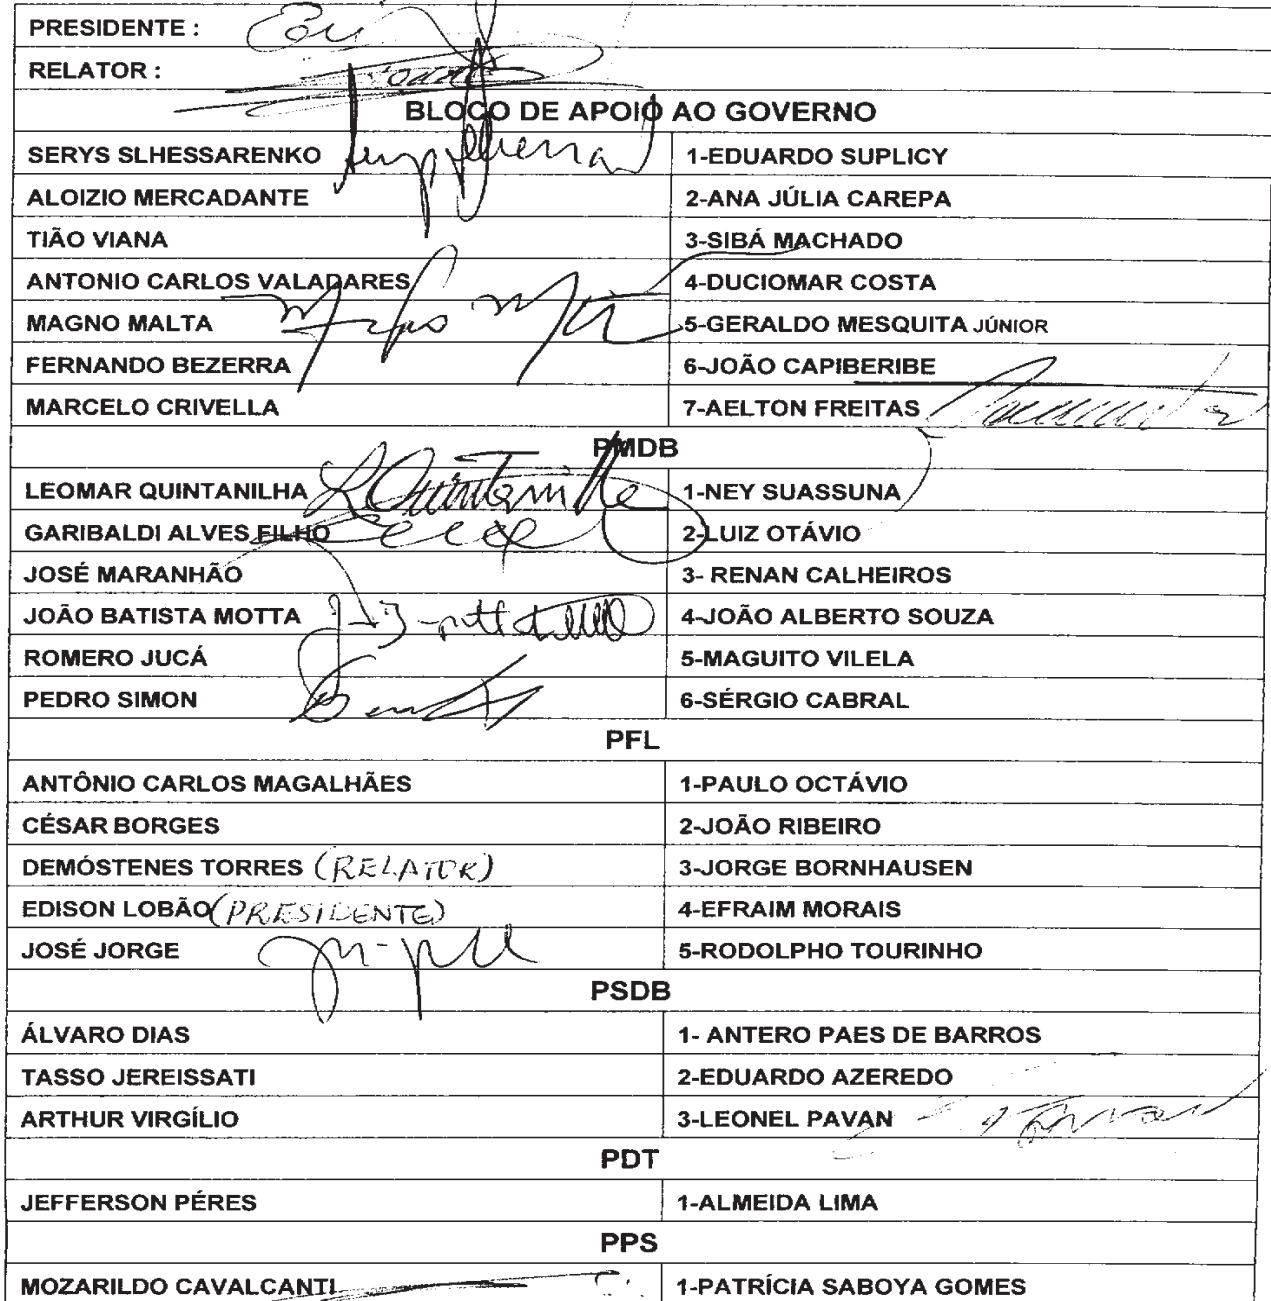 PRESIDENTE :
RELATOR :
BLOCO DE APOIO AO GOVERNO
SERYS SLHESSARENKO 1-EDUARDO SUPLICY
ALOIZIO MERCADANTE 2-ANA JÚLIA CAREPA
TIÃO VIANA 3-SIBÁ MACHADO
ANTONIO CARLOS VALADARES 4-DUCIOMAR COSTA
MAGNO MALTA 5-GERALDO MESQUITA JÚNIOR
FERNANDO BEZERRA 6-JOÃO CAPIBERIBE
MARCELO CRIVELLA 7-AELTON FREITAS
PMDB
LEOMAR QUINTANILHA LQuintanilha 1-NEY SUASSUNA
GARIBALDI ALVES FILHO 2-LUIZ OTÁVIO
JOSÉ MARANHÃO 3- RENAN CALHEIROS
JOÃO BATISTA MOTTA 4-JOÃO ALBERTO SOUZA
ROMERO JUCÁ 5-MAGUITO VILELA
PEDRO SIMON 6-SÉRGIO CABRAL
PFL
ANTÔNIO CARLOS MAGALHÃES 1-PAULO OCTÁVIO
CÉSAR BORGES 2-JOÃO RIBEIRO
DEMÓSTENES TORRES (RELATOR) 3-JORGE BORNHAUSEN
EDISON LOBÃO (PRESIDENTE) 4-EFRAIM MORAIS
JOSÉ JORGE 5-RODOLPHO TOURINHO
PSDB
ÁLVARO DIAS 1- ANTERO PAES DE BARROS
TASSO JEREISSATI 2-EDUARDO AZEREDO
ARTHUR VIRGÍLIO 3-LEONEL PAVAN
PDT
JEFFERSON PÉRES 1-ALMEIDA LIMA
PPS
MOZARILDO CAVALCANTI 1-PATRÍCIA SABOYA GOMES